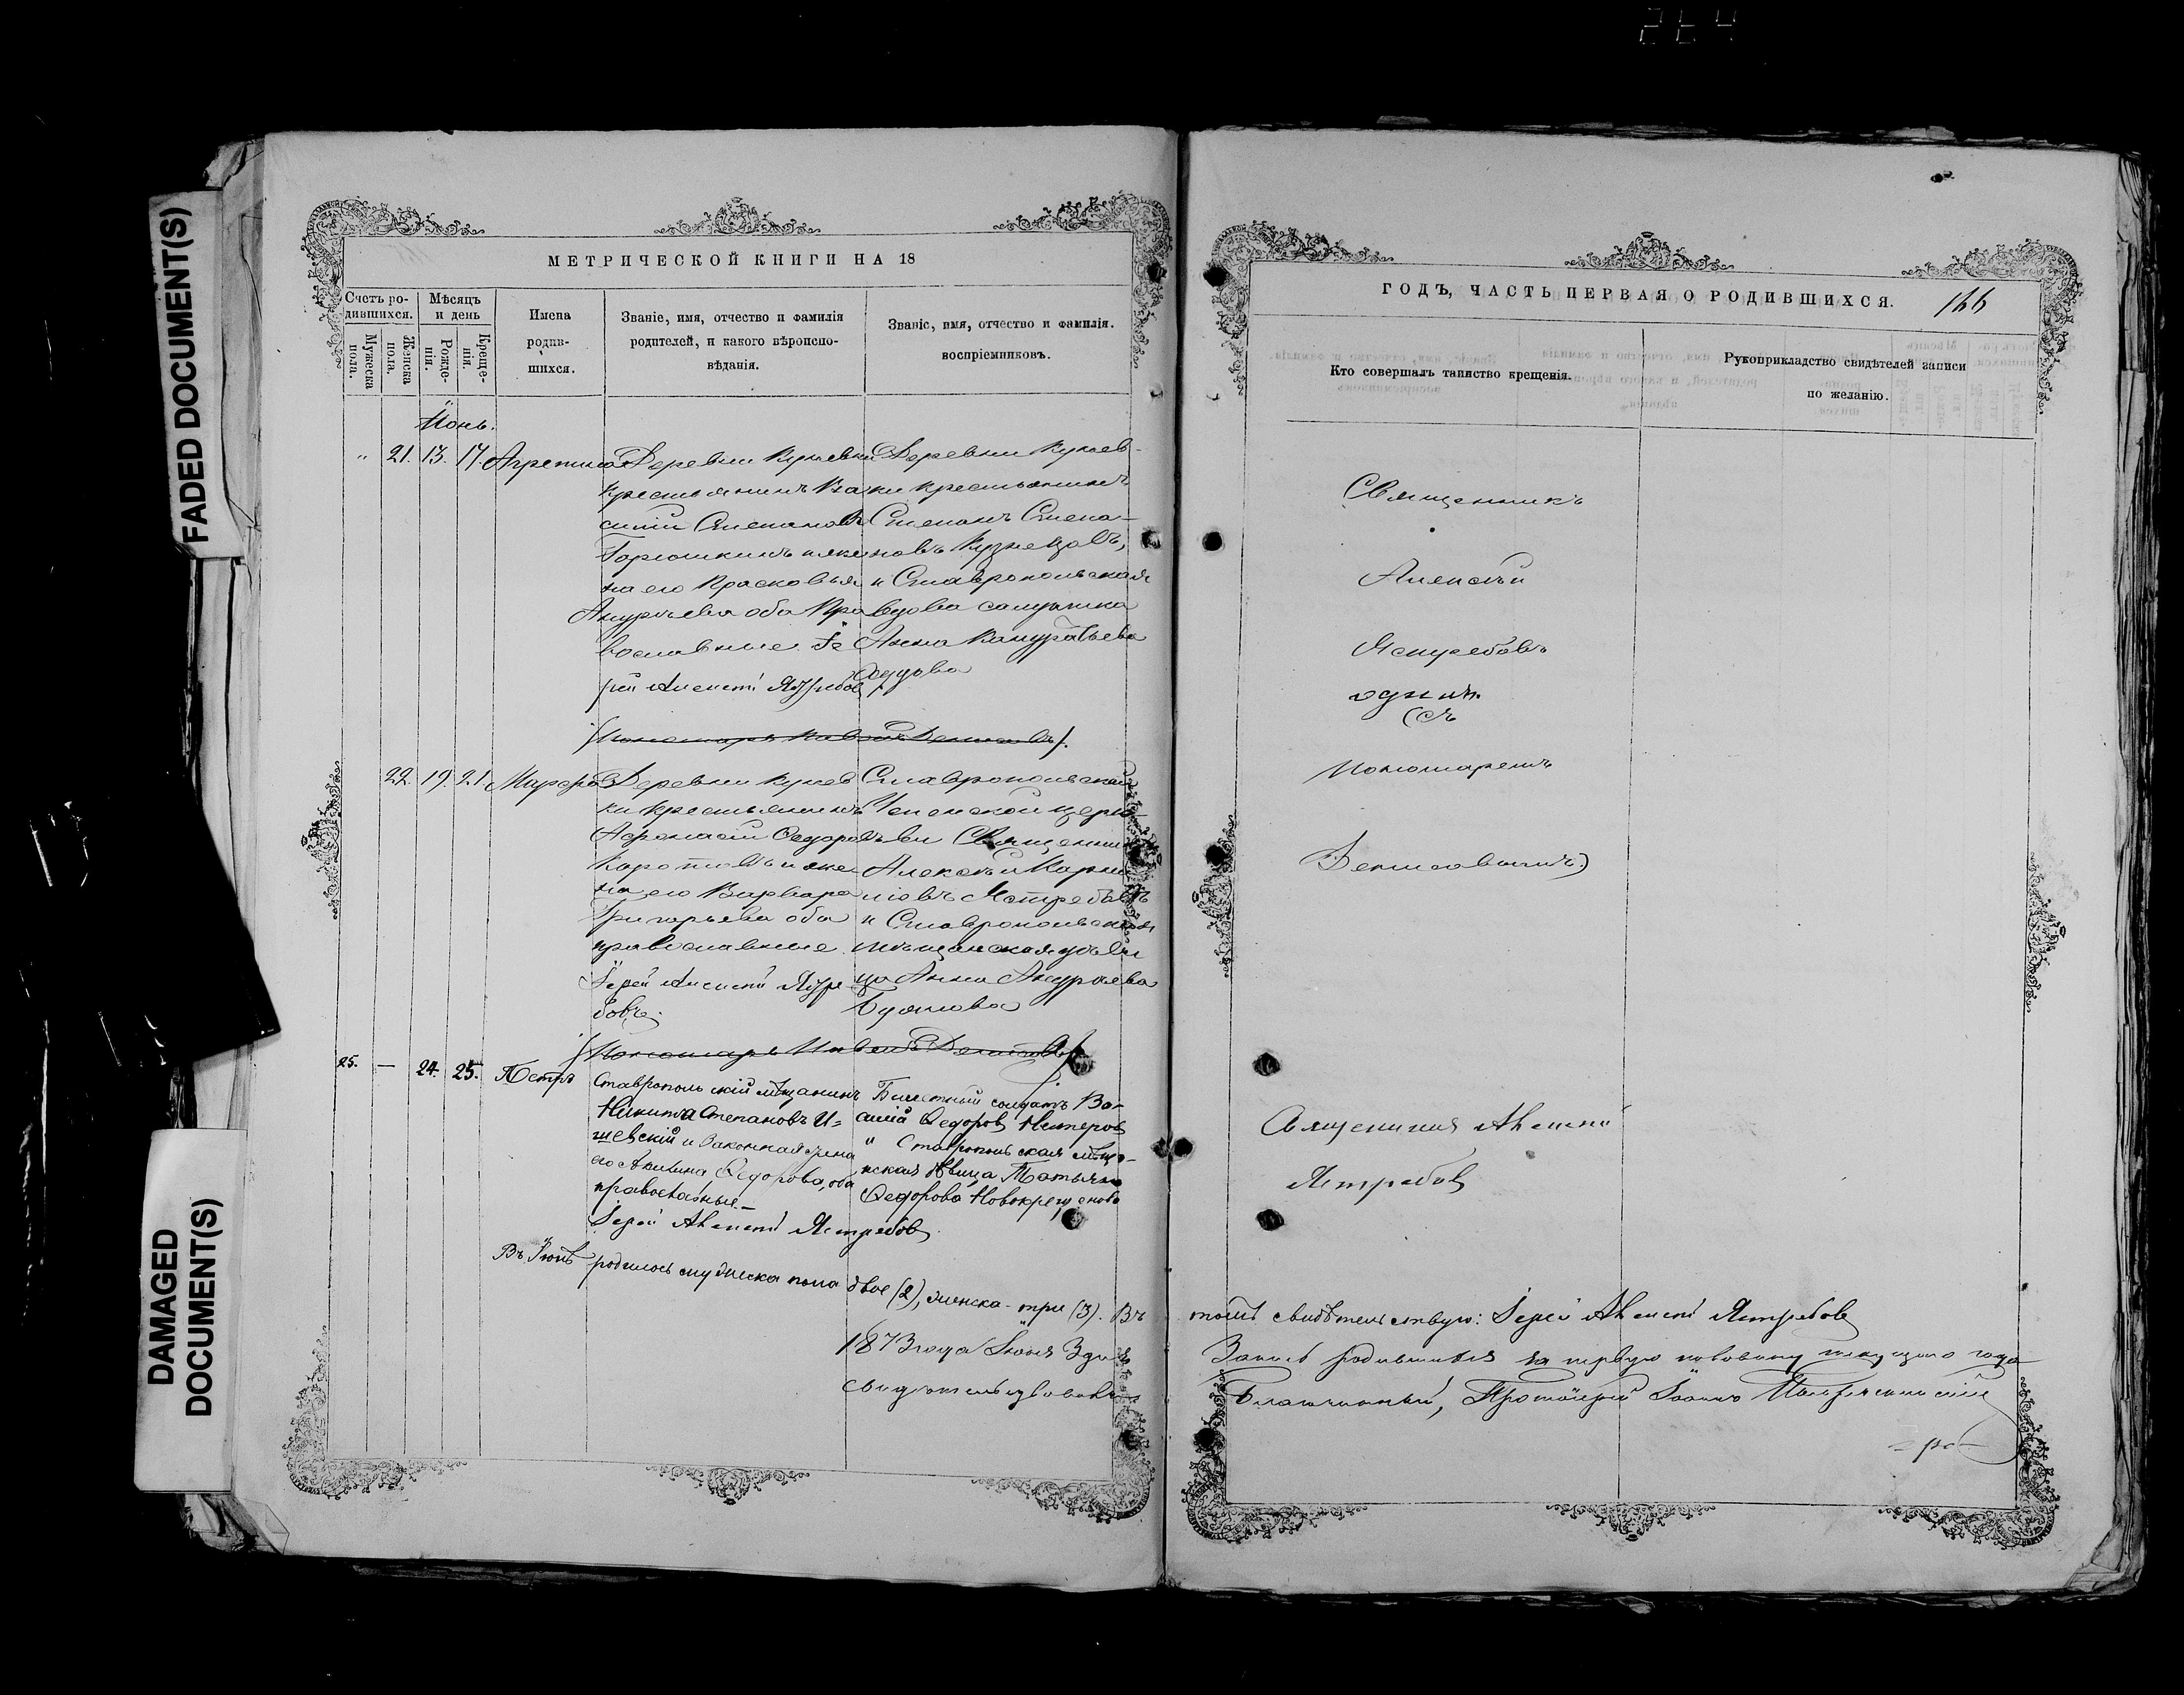 FADED DOCUMENT(S)
DAMAGED
DOCUMENT(S)
МЕТРИЧЕСКОЙ КНИГИ НА 18
Счетъ ро-
дившихся.
Мужеска
пола.
Женска
пола.
Мѣсяцъ
и день
Рожде-
нія.
Креще-
нія.
Имена
родив-
шихся.
Званіе, имя, отчество и фамилія
родителей, и какого вѣроиспо-
вѣданія.
Званіе, имя, отчество и фамилія.
воспріемниковъ.
Іюнь.
" 21. 13. 17. Агрепина
Деревни
крестьянинъ Ва
силій Степановъ
Горюшкинъ и же
на его Прасковья
оба Пра
вославные. Іе
рей Алексѣй Ястребовъ
Деревни
ки крестьянинъ
Степанъ Степа-
новъ Кузнецовъ,
и Ставропольская
вдова солдатка
Анна
22. 19. 21. Марѳа
Деревни
ки крестьянинъ
Ѳедоровъ
и же
на его Варвара
Григорьева оба
православные
Іерей Алексѣй Ястре
бовъ.
Ставропольской
Успенской церк
ви Священникъ
Алексѣй
Ястребовъ
и Ставропольская
мѣщанская
ца Анна
25. — 24. 25. Петръ
Ставропольскій мѣщанинъ
Никита Степановъ И=
шевскій и законная жена
его Акилина Ѳедорова, оба
православные.—
Іерей Алексѣй Ястребовъ
Билетный солдатъ Ва-
силій Ѳедоровъ
" Ставропольская мѣща-
нская дѣвица Татьяна
Ѳедорова Новокрещенова
Въ Іюнѣ родилось мужеска пола двое (2), женска - три (3). Въ
1873 года Іюня 3 дня
свидѣтельствовалъ
ГОДЪ, ЧАСТЬ ПЕРВАЯ О РОДИВШИХСЯ.
166
Кто совершалъ таинство крещенія.
Рукоприкладство свидѣтелей записи
по желанію.
Священникъ
Алексѣй
Ястребовъ
одинъ.
(съ
Пономаремъ
Денисовымъ)
Священникъ Алексѣй
Ястребовъ
томъ свидѣтельствую: Іерей Алексѣй Ястребовъ
Запись родившихся за первую половину текущаго года
Благочинный, Протоіерей Іоаннъ